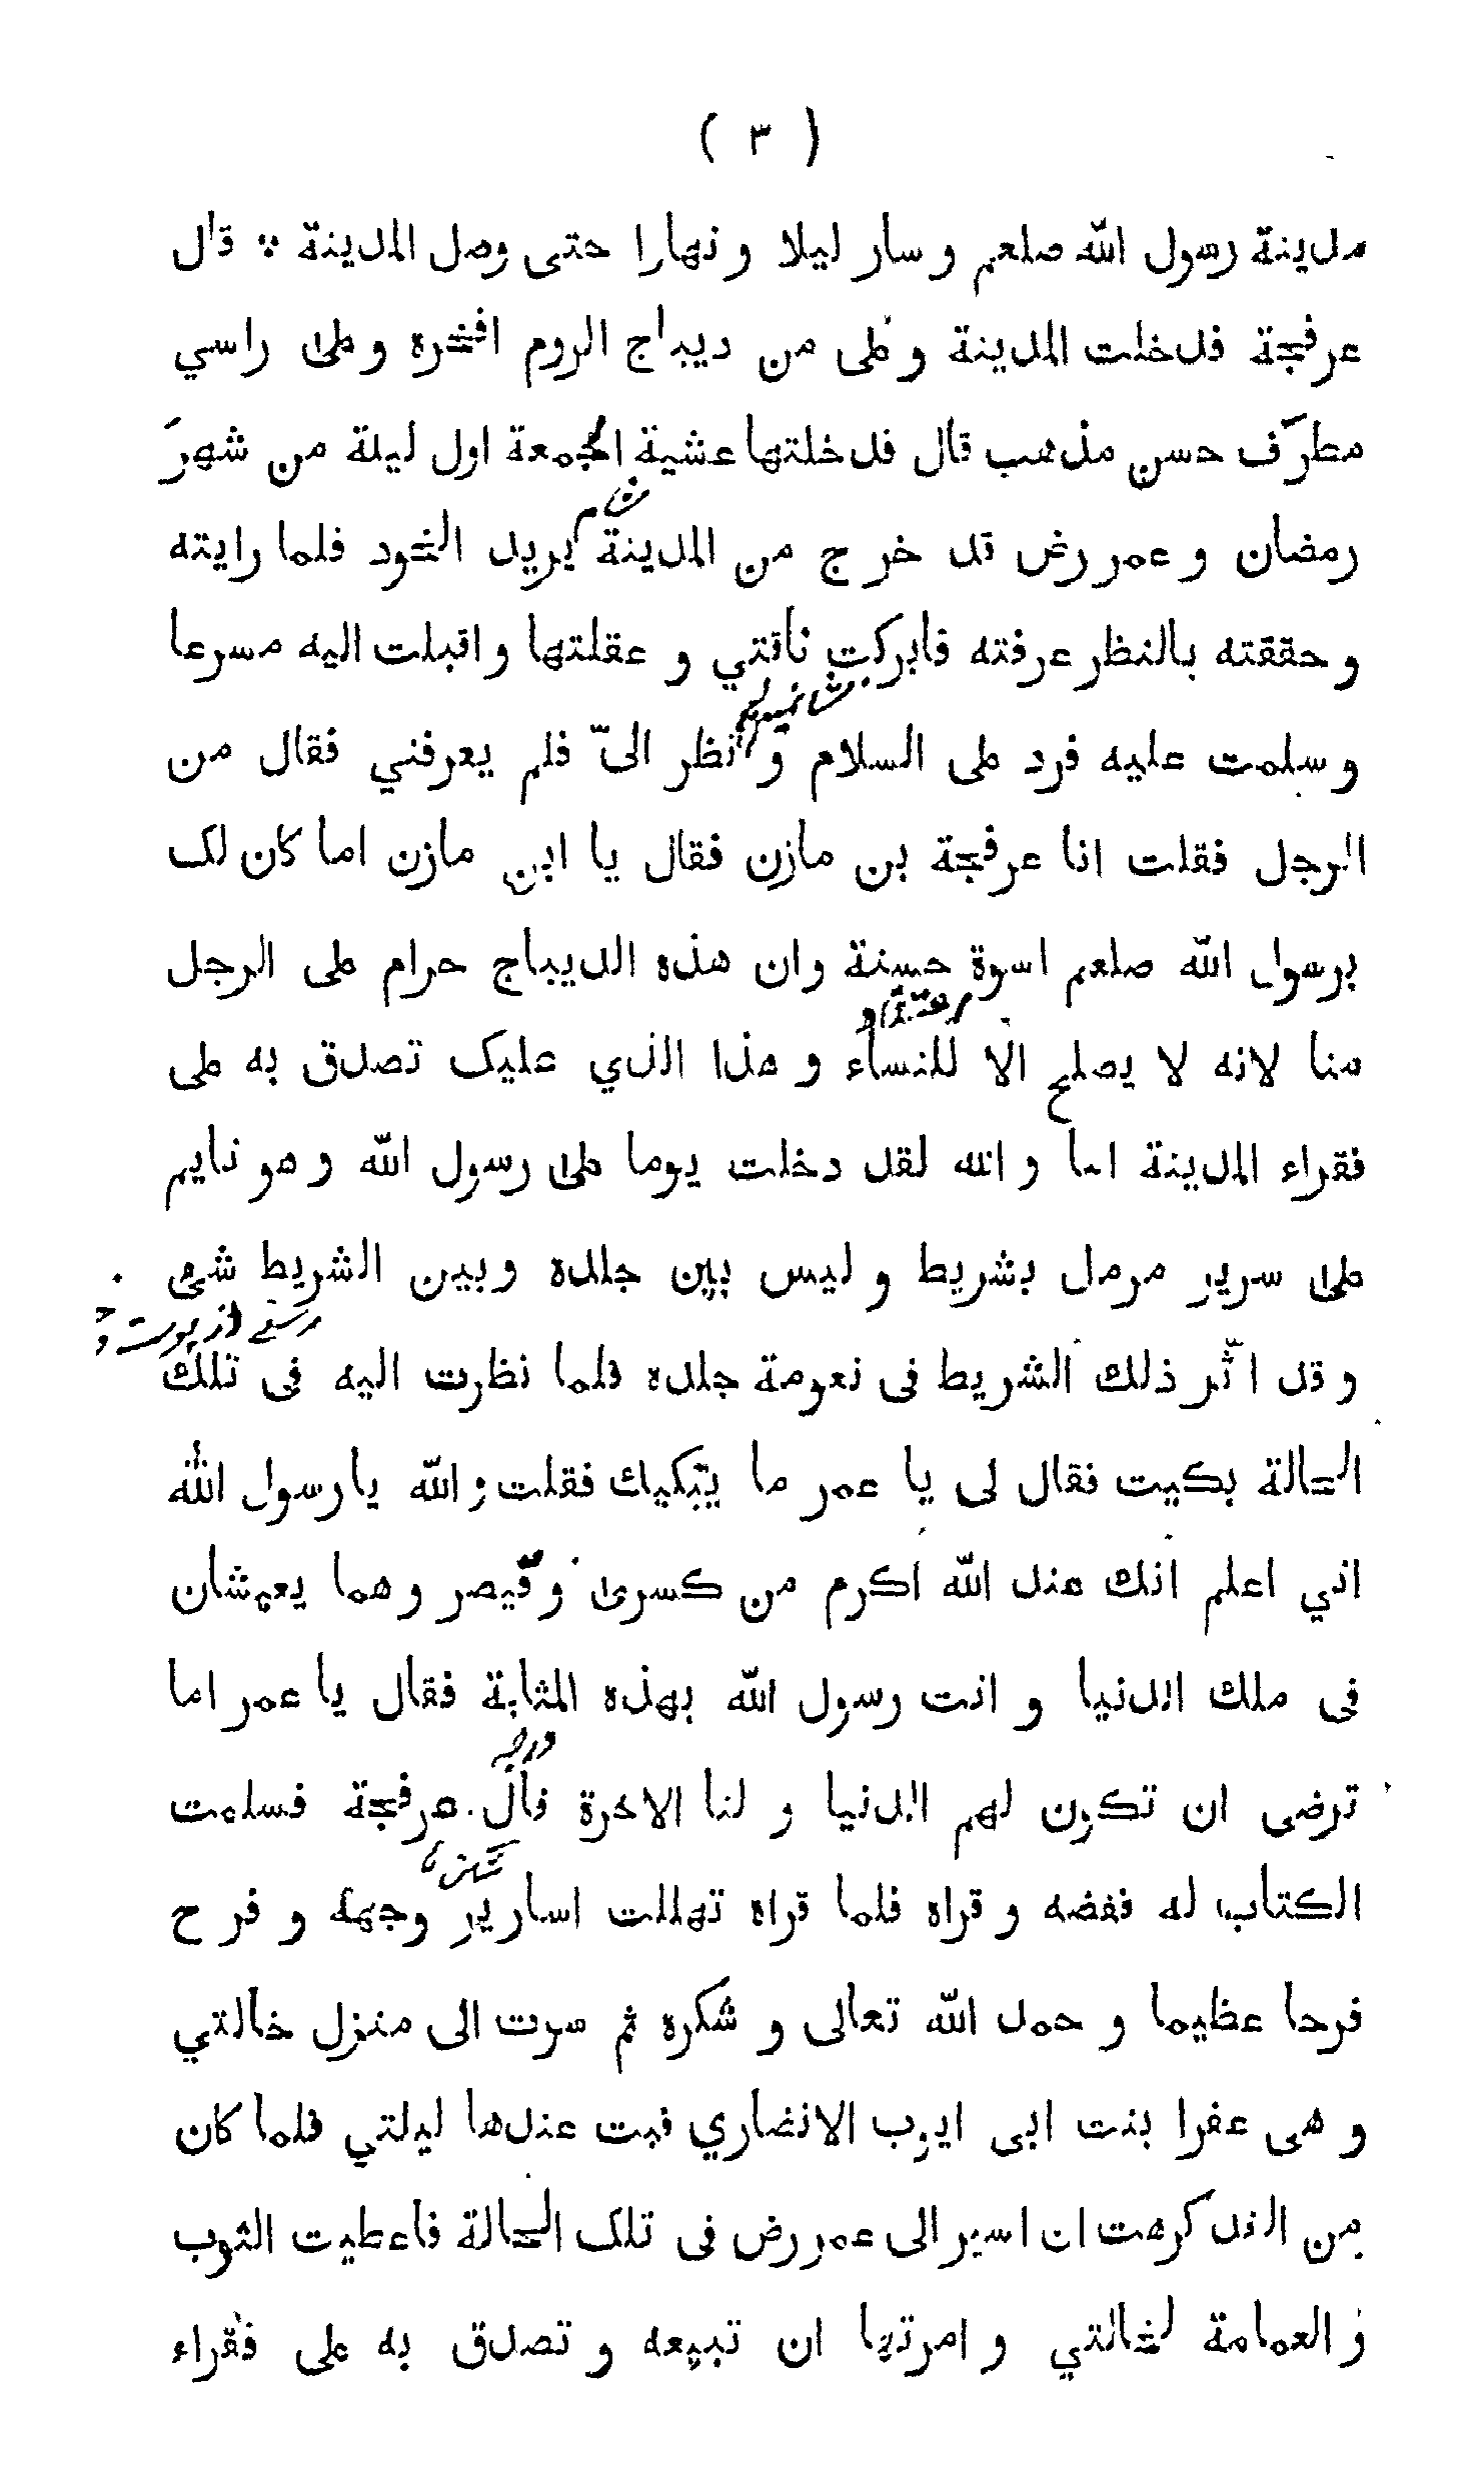 ( ٣ )
مدينة رسول الله صلعم و سار ليلا و نهارا حتى وصل المدينة ** قال
عرفجة فدخلت المدينة و على من ديباج الروم افخره و على راسي
مطرف حسن مذهب قال فدخلتها عشية الجمعة اول ليلة من شهر
رمضان و عمر رض قد خرج من المدينة يريد النخود فلما رايته
و حققته بالنظر عرفته فابركت ناقتي و عقلتها و اقبلت اليه مسرعا
و سلمت عليه فرد على السلام و نظر الىّ فلم يعرفني فقال من
الرجل فقلت انا عرفجة بن مازن فقال يا ابن مازن اما كان لك
برسول الله صلعم اسوة حسنة وان هذه الديباج حرام على الرجل
منا لانه لا يصلح الا للنساء و هذا الذي عليك تصدق به على
فقراء المدينة اما و الله لقد دخلت يوما على رسول الله و هو نايم
على سرير مرمل بشريط و ليس بين جلده و بين الشريط شى
و قد اثّر ذلك الشريط فى نعومة جلده فلما نظرت اليه فى تلك
الحالة بكيت فقال لى يا عمر ما يبكيك فقلت و الله يا رسول الله
اني اعلم انك عند الله اكرم من كسرى و قيصر و هما يعيشان
فى ملك الدنيا و انت رسول الله بهذه المثابة فقال يا عمر اما
ترضى ان تكون لهم الدنيا و لنا الاخرة قال عرفجة فسلمت
الكتاب له ففضه و قراه فلما قراه تهللت اسارير وجهه و فرح
فرحا عظيما و حمد الله تعالى و شكره ثم سرت الى منزل خالتي
و هى عفرا بنت ابى ايوب الانضاري فبت عندها ليلتي فلما كان
من الغد كرهت ان اسير الى عمر رض فى تلك الحالة فاعطيت الثوب
و العمامة لخالتي و امرتها ان تبيعه و تصدق به على فقراء